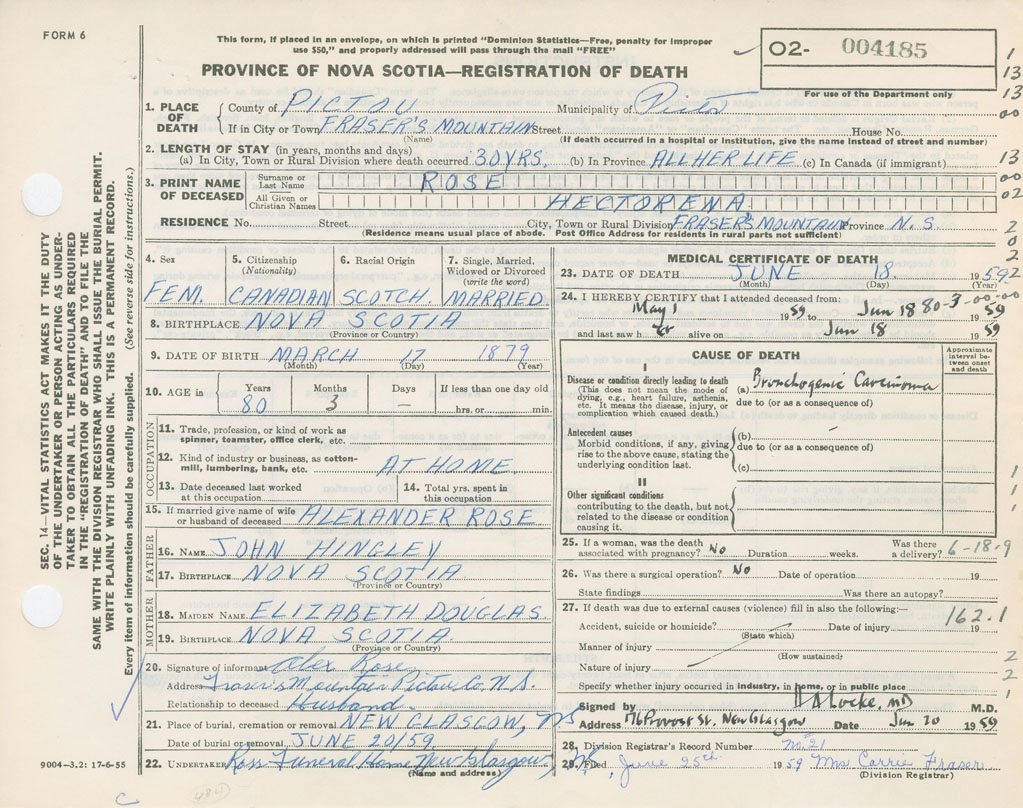 FORM 6
This form, if placed in an envelope, on which is printed "Dominion Statistics—Free, penalty for improper
use $50," and properly addressed will pass through the mail "FREE"
PROVINCE OF NOVA SCOTIA—REGISTRATION OF DEATH
O2- 004185
For use of the Department only
1. PLACE OF DEATH County of PICTOU Municipality of Pictou
If in City or Town FRASER'S MOUNTAIN Street House No.
(Name) (If death occurred in a hospital or institution, give the name instead of street and number)
2. LENGTH OF STAY (in years, months and days)
(a) In City, Town or Rural Division where death occurred 30 YRS. (b) In Province ALL HER LIFE (c) In Canada (if immigrant)
3. PRINT NAME OF DECEASED Surname or Last Name ROSE
All Given or Christian Names HECTORENA
RESIDENCE No. Street City, Town or Rural Division FRASER'S MOUNTAIN Province N.S
(Residence means usual place of abode. Post Office Address for residents in rural parts not sufficient)
4. Sex FEM.
5. Citizenship (Nationality) CANADIAN
6. Racial Origin SCOTCH
7. Single, Married, Widowed or Divorced (write the word) MARRIED
8. BIRTHPLACE NOVA SCOTIA
(Province or Country)
9. DATE OF BIRTH MARCH 17 1879
(Month) (Day) (Year)
10. AGE in Years 80 Months 3 Days — If less than one day old hrs. or min.
OCCUPATION
11. Trade, profession, or kind of work as spinner, teamster, office clerk, etc.
12. Kind of industry or business, as cotton-mill, lumbering, bank, etc. AT HOME
13. Date deceased last worked at this occupation
14. Total yrs. spent in this occupation
15. If married give name of wife or husband of deceased ALEXANDER ROSE
FATHER
16. NAME JOHN HINGLEY
17. BIRTHPLACE NOVA SCOTIA
(Province or Country)
MOTHER
18. MAIDEN NAME ELIZABETH DOUGLAS
19. BIRTHPLACE NOVA SCOTIA
(Province or Country)
20. Signature of informant Alex Rose
Address Fraser's Mountain Pictou Co. N.S.
Relationship to deceased Husband
21. Place of burial, cremation or removal NEW GLASGOW, NS
Date of burial or removal JUNE 20/59
22. UNDERTAKER Ross Funeral Home New Glasgow, NS
(Name and address)
MEDICAL CERTIFICATE OF DEATH
23. DATE OF DEATH JUNE 18. 1959
(Month) (Day) (Year)
24. I HEREBY CERTIFY that I attended deceased from:
May 1 1959 to Jun 18 1959
80-3-00-00
and last saw her alive on Jun 18 1959
CAUSE OF DEATH
Approximate interval between onset and death
I
Disease or condition directly leading to death (a) Bronchogenic Carcinoma
(This does not mean the mode of dying, e.g., heart failure, asthenia, etc. It means the disease, injury, or complication which caused death.)
due to (or as a consequence of)
Antecedent causes
Morbid conditions, if any, giving rise to the above cause, stating the underlying condition last.
(b)
due to (or as a consequence of)
(c)
II
Other significant conditions contributing to the death, but not related to the disease or condition causing it.
25. If a woman, was the death associated with pregnancy? No Duration weeks. Was there a delivery?
6-18-9
26. Was there a surgical operation? No Date of operation 19
State findings Was there an autopsy?
27. If death was due to external causes (violence) fill in also the following:—
162.1
Accident, suicide or homicide? Date of injury 19
(State which)
Manner of injury
(How sustained)
Nature of injury
Specify whether injury occurred in industry, in home, or in public place
Signed by Locke, MD M.D.
Address 76 Provost St. New Glasgow Date Jun 20 1959
28. Division Registrar's Record Number No. 21
29. Filed June 25th 1959 Mrs Carrie Fraser
(Division Registrar)
SEC. 14—VITAL STATISTICS ACT MAKES IT THE DUTY
OF THE UNDERTAKER OR PERSON ACTING AS UNDER-
TAKER TO OBTAIN ALL THE PARTICULARS REQUIRED
IN THE "REGISTRATION OF DEATH" AND TO FILE THE
SAME WITH THE DIVISION REGISTRAR WHO SHALL ISSUE THE BURIAL PERMIT.
WRITE PLAINLY WITH UNFADING INK. THIS IS A PERMANENT RECORD.
Every item of information should be carefully supplied. (See reverse side for instructions.)
9004—3.2: 17-6-55
1
13
13
00
13
00
02
2
0
2
2
1
1
1
2
2
1